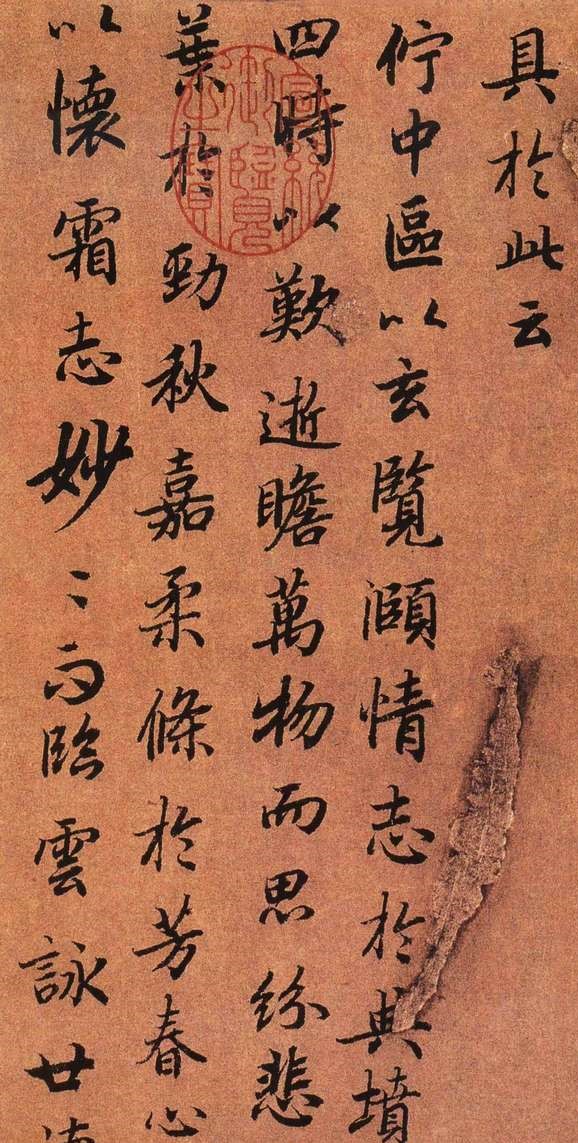 具於此云
佇中區以玄覽頤情志於典墳
四時以歎逝瞻萬物而思紛悲
葉於勁秋嘉柔條於芳春心
以懷霜志妙〻而臨雲詠廿
宣統御覽之寶